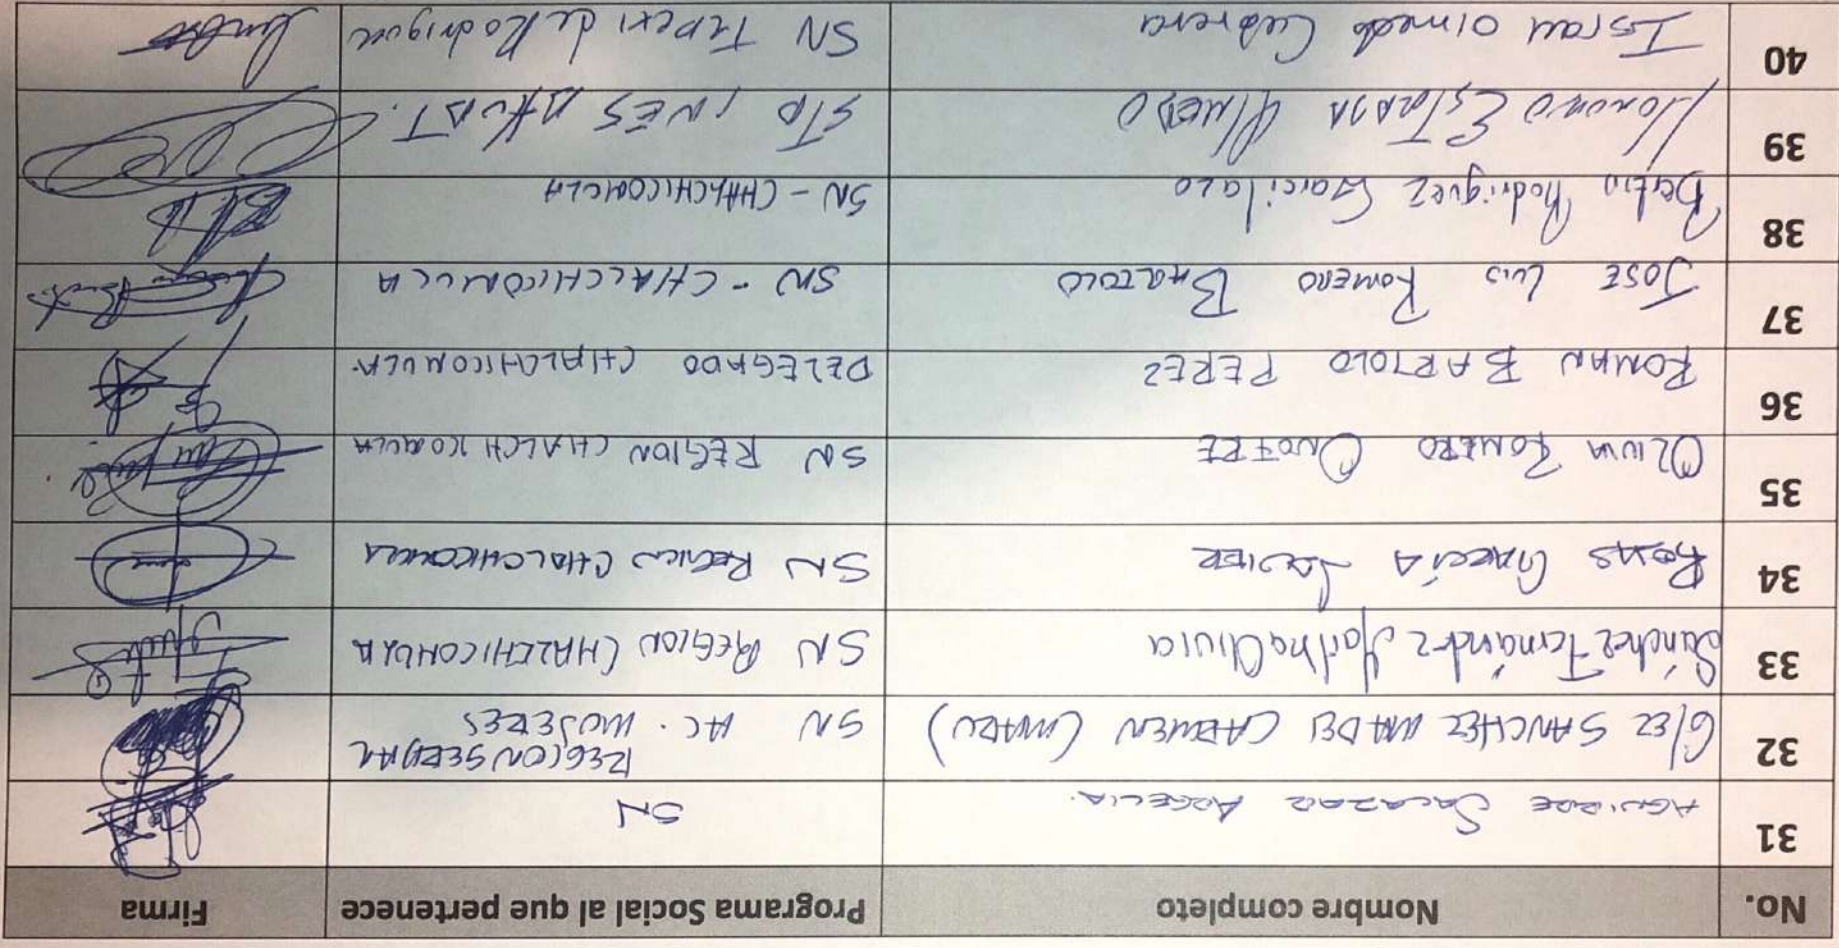 No. Nombre completo Programa Social al que pertenece Firma
31 AGUIRRE SALAZAR ARGELIA. SN
32 G/EZ SANCHEZ MA DEL CARMEN (MARU) SN AC. MUJERES
REGION SERDAN
33 Sánchez Fernández Martha Olivia SN REGION CHALCHICOMULA
34 ROJAS GARCÍA JAVIER SN REGION CHALCHICOMULA
35 OLIVIA ROMERO ONOFRE SN REGION CHALCHICOMULA
36 ROMAN BARTOLO PEREZ DELEGADO CHALCHICOMULA
37 JOSE LUIS ROMERO BARTOLO SN - CHALCHICOMULA
38 Bertin Rodriguez Garcilazo SN - CHALCHICOMULA
39 ESTRADA OLMEDO STA INES AHUAT.
40 Israel Olmedo Cabrera SN TEPEXI de Rodriguez